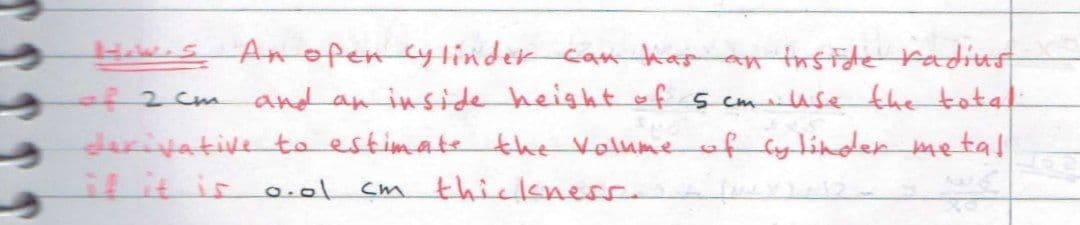 H.w.5 An open cylinder can has an inside radius
of 2 cm and an inside height of 5 cm. use the total
derivative to estimate the volume of cylinder metal
if it is 0.01 cm thickness.